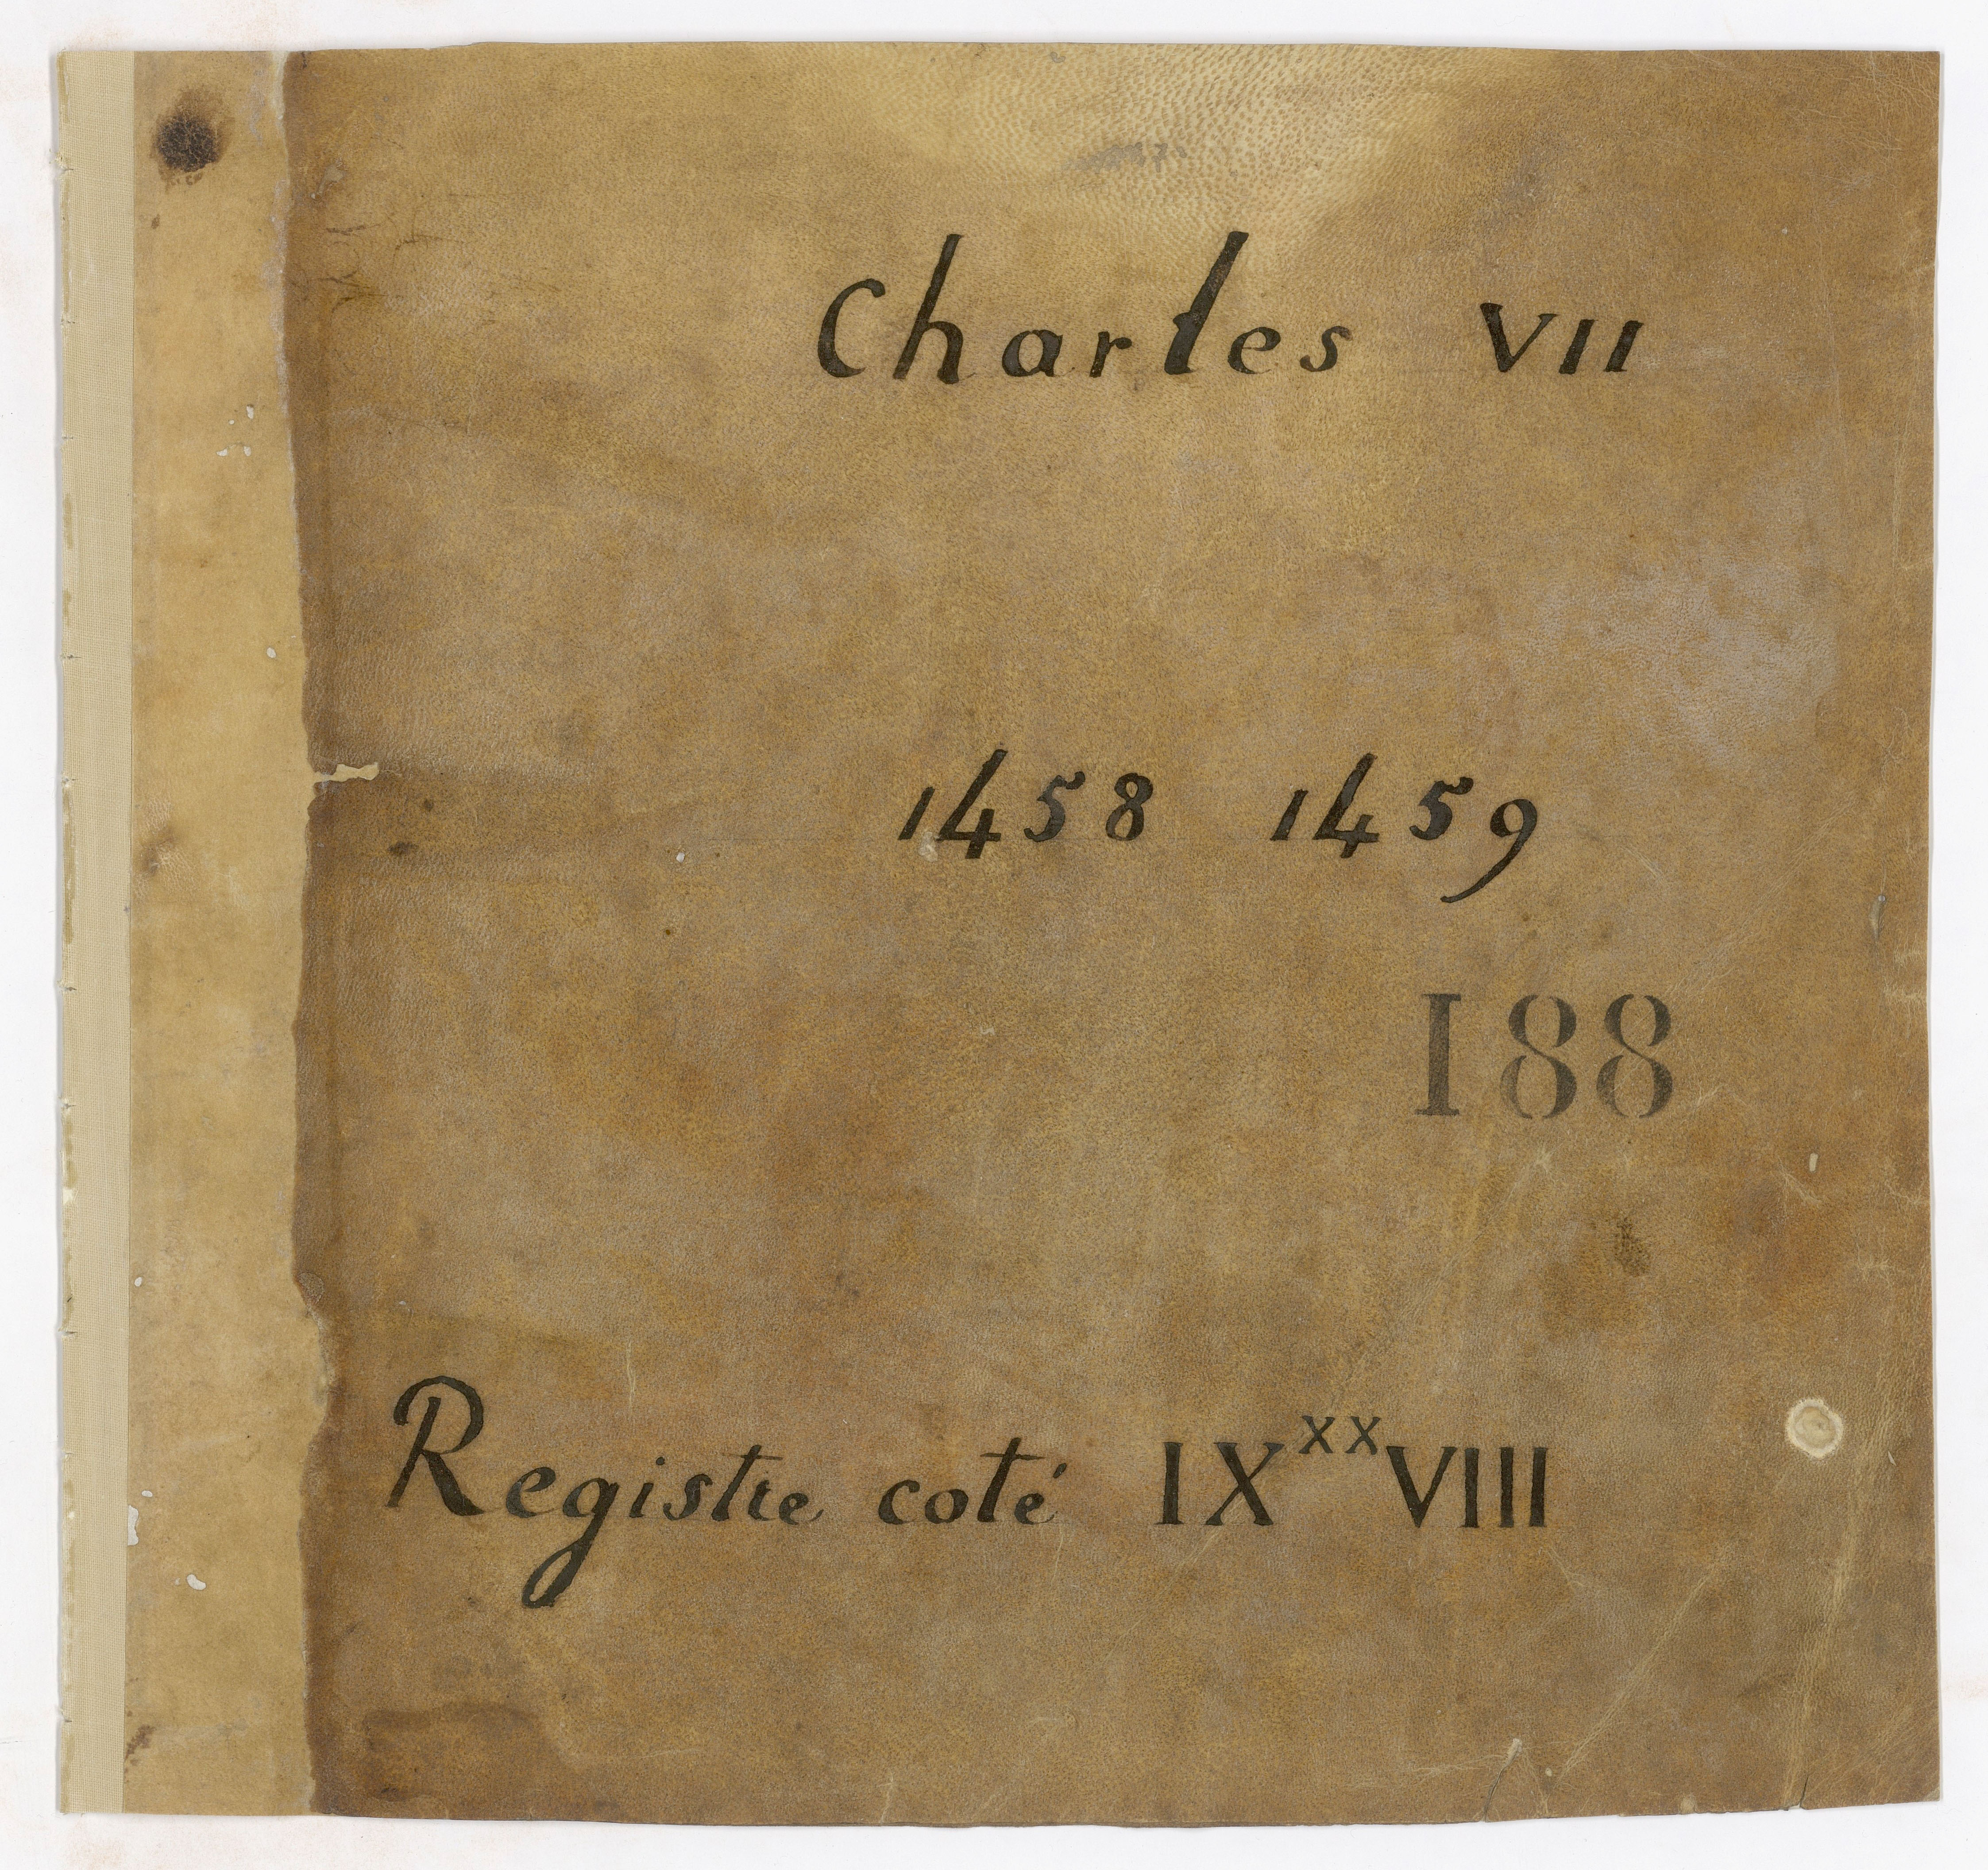 Charles VII
1458 1459
188
Registre coté IXˣˣVIII